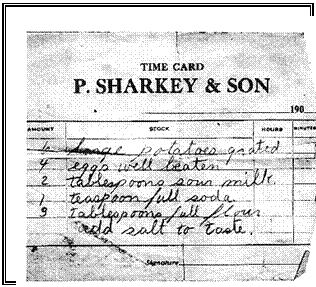 TIME CARD
P. SHARKEY & SON
190
AMOUNT STOCK HOURS MINUTES
6 large potatoes grated
4 eggs well beaten
2 tablespoons sour milk.
1 teaspoon full soda
3 tablespoons full flour
add salt to taste.
Signature